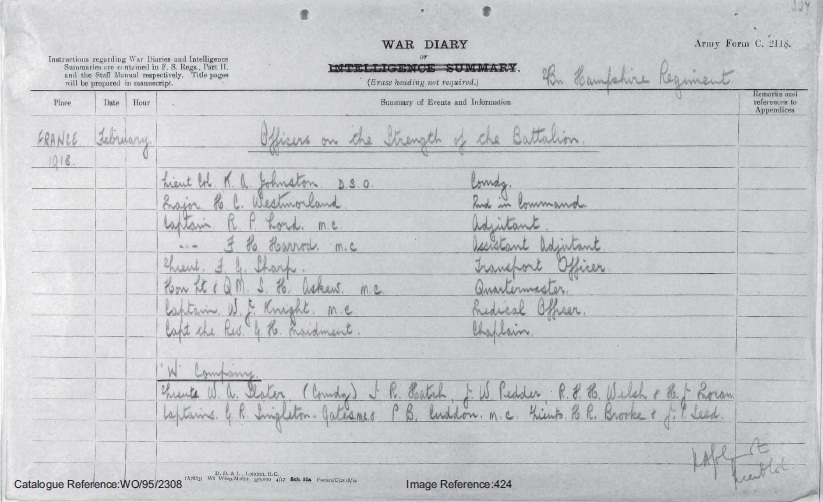 WAR DIARY
or
INTELLIGENCE SUMMARY.
(Erase heading not required.)
Army Form C. 2118.
Instructions regarding War Diaries and Intelligence
Summaries are contained in F. S. Regs., Part II.
and the Staff Manual respectively. Title pages
will be prepared in manuscript.
Hampshire Regiment
Place Date Hour Summary of Events and Information Remarks and
references to
Appendices
FRANCE February Officers on the Strength of the Battalion.
1918.
Lieut Col. K. A. Johnston D.S.O. Comdg.
Major H. C. Westmorland 2nd in Command
Captain R. P. Lord. M.C Adjutant.
F H Harrod. M.C Assistant Adjutant
Lieut. F. G. Sharp. Transport Officer
Hon Lt & QM. S. H. Askew. M.C. Quartermaster.
Captain W. J. Knight. M.C. Medical Officer.
Capt the Rev. G. H. Maidment. Chaplain.
"W" Company.
Lieuts W. A. Slater (Comdg) J. R. Hatch, J. W. Pedder, R. H. H. Welsh & H. J.
Captains G R. Singleton-Gates M.C & P B. Cuddon. M.C. Lieuts H. R. Brooke &
D. D. & L., London, E.C.
Sch. 52a
Catalogue Reference:WO/95/2308 Image Reference:424